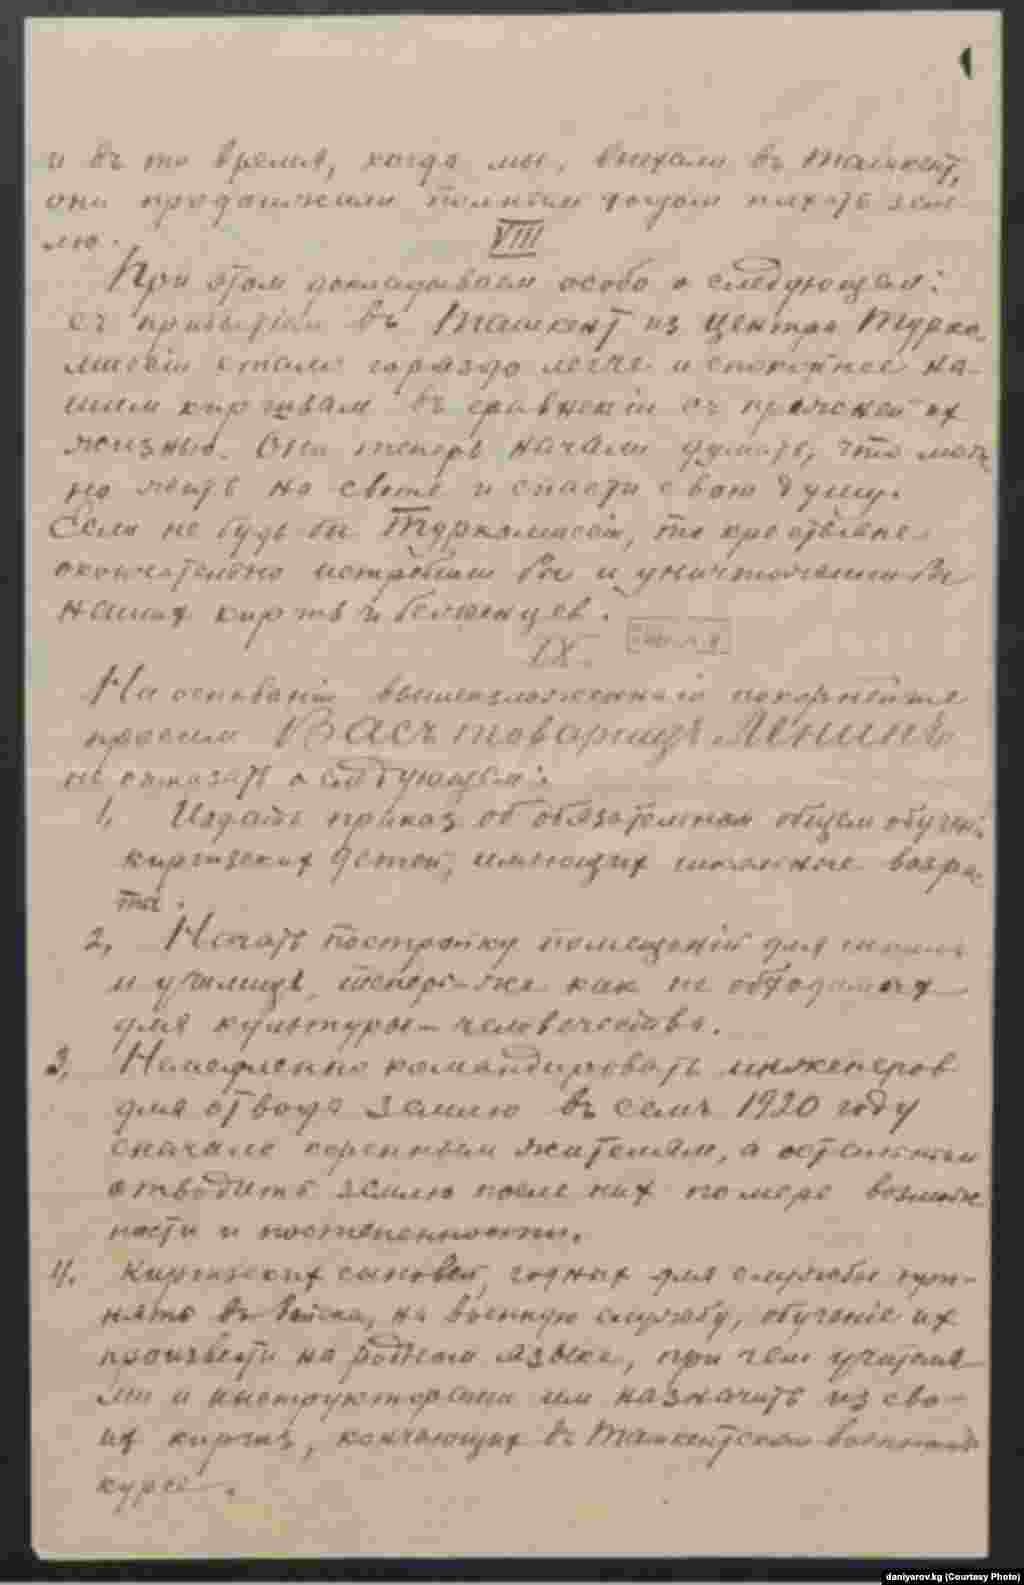 и въ то время, когда мы, выехали въ Ташкент,
они продолжали полным ходом пахать зем-
лю.
VIII
При этом докладываем особо о следующем:
съ прибытіем въ Ташкент из центра Турко-
миссіи стало гораздо легче и спокойнее на-
шим киргизам въ сравненіи съ прежней их
жизнью. Они теперь начали думать, что мож-
но жить на свете и спасти свою душу.
Если не будь бы Туркомиссіи, то крестьяне
окончательно истребили бы и уничтожили бы
наших киргиз и беженцев.
IX.
На основаніи вышеизложеннаго покорнейше
просим Васъ товарищъ Ленинъ
не отказать о следующем:
1. Издать приказ об обязательном общем обучені
киргизских детей, имеющих школьные возра-
та.
2. Начать постройку помещеній для школъ
и училищъ, теперь-же как необходимых
для культуры человечества.
3. Немедленно командировать инженеров
для отвода землю въ семъ 1920 году
сначала коренным жителям, а остальным
отводить землю после них по мере возмож
ности и постепенности.
4. Киргизских сыновей, годных для службы при-
нять въ войска, на военную службу, обученіе их
произвести на родном языке, при чем учителя-
ми и инструкторами им назначить из сво-
их киргиз, кончающих въ Ташкентском военном
курсе.
daniyarov.kg (Courtesy Photo)